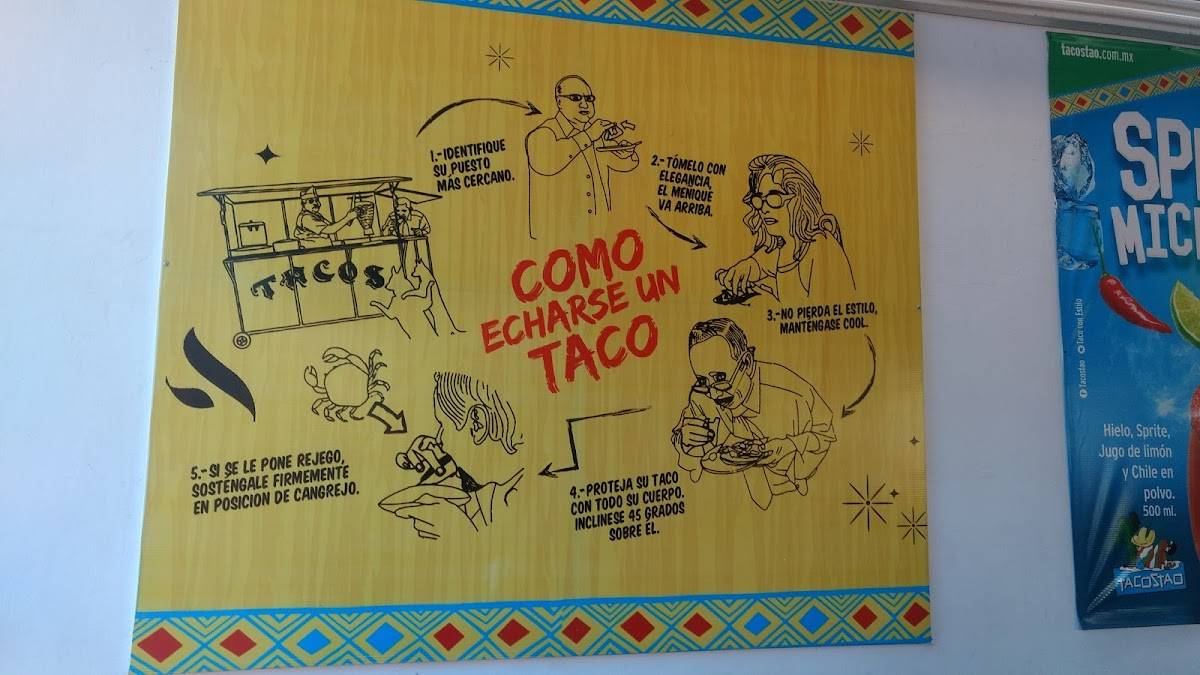 COMO
ECHARSE UN
TACO
1.-IDENTIFIQUE
SU PUESTO
MÁS CERCANO.
2.- TÓMELO CON
ELEGANCIA,
EL MENIQUE
VA ARRIBA.
3.-NO PIERDA EL ESTILO,
MANTÉNGASE COOL.
4.-PROTEJA SU TACO
CON TODO SU CUERPO.
INCLINESE 45 GRADOS
SOBRE EL.
5.-SI SE LE PONE REJEGO,
SOSTÉNGALE FIRMEMENTE
EN POSICION DE CANGREJO.
TACOS
tacostao.com.mx
SP
MIC
Tacostao Taco con Estilo
Hielo, Sprite,
Jugo de limón
y Chile en
polvo.
500 ml.
TACOSTAO